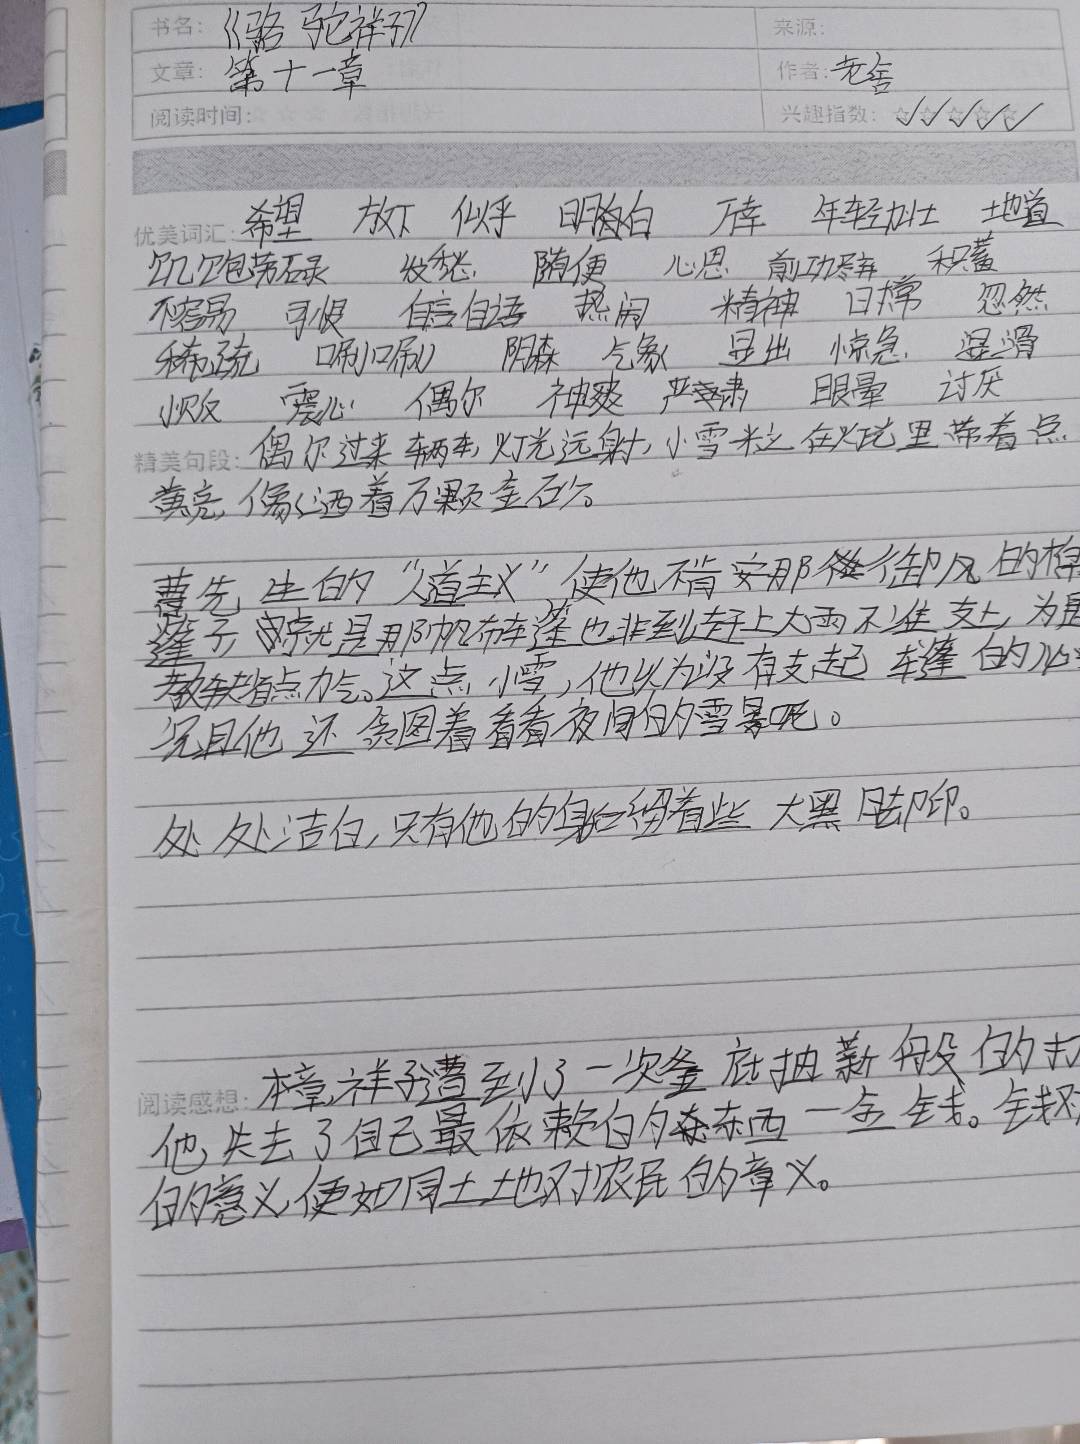 书名：《骆驼祥子》 来源：
文章：第十一章 作者：老舍
阅读时间： 兴趣指数：☆☆☆☆☆
优美词汇：希望 放下 似乎 明白 万幸 年轻力壮 地道
忙忙碌碌 发愁 随便 心思 前功尽弃 积蓄
不容易 可恨 自言自语 热闹 精神 日常 忽然
稀疏 唰唰 阴森 气象 显出 惊急 湿滑
震心 偶尔 神爽 严肃 眼晕 讨厌
精美句段：偶尔过来辆车，灯光远射，小雪粒在灯光里带着点
黄亮，像洒着万颗金砂。
曹先生的“道主义”使他不肯安那御风的棉
篷子，就是那帆布车篷也非到赶上大雨不准支上，为是
教车夫省点力气。这点小雪，他以为没有支起车篷的必
况且他还贪图着看看夜间的雪景呢。
处处洁白，只有他的身后留着些大黑脚印。
阅读感想：本章，祥子遭到了一次釜底抽薪般的打
他失去了自己最依赖的东西一金钱。钱对
的意义，便如同土地对农民的意义。